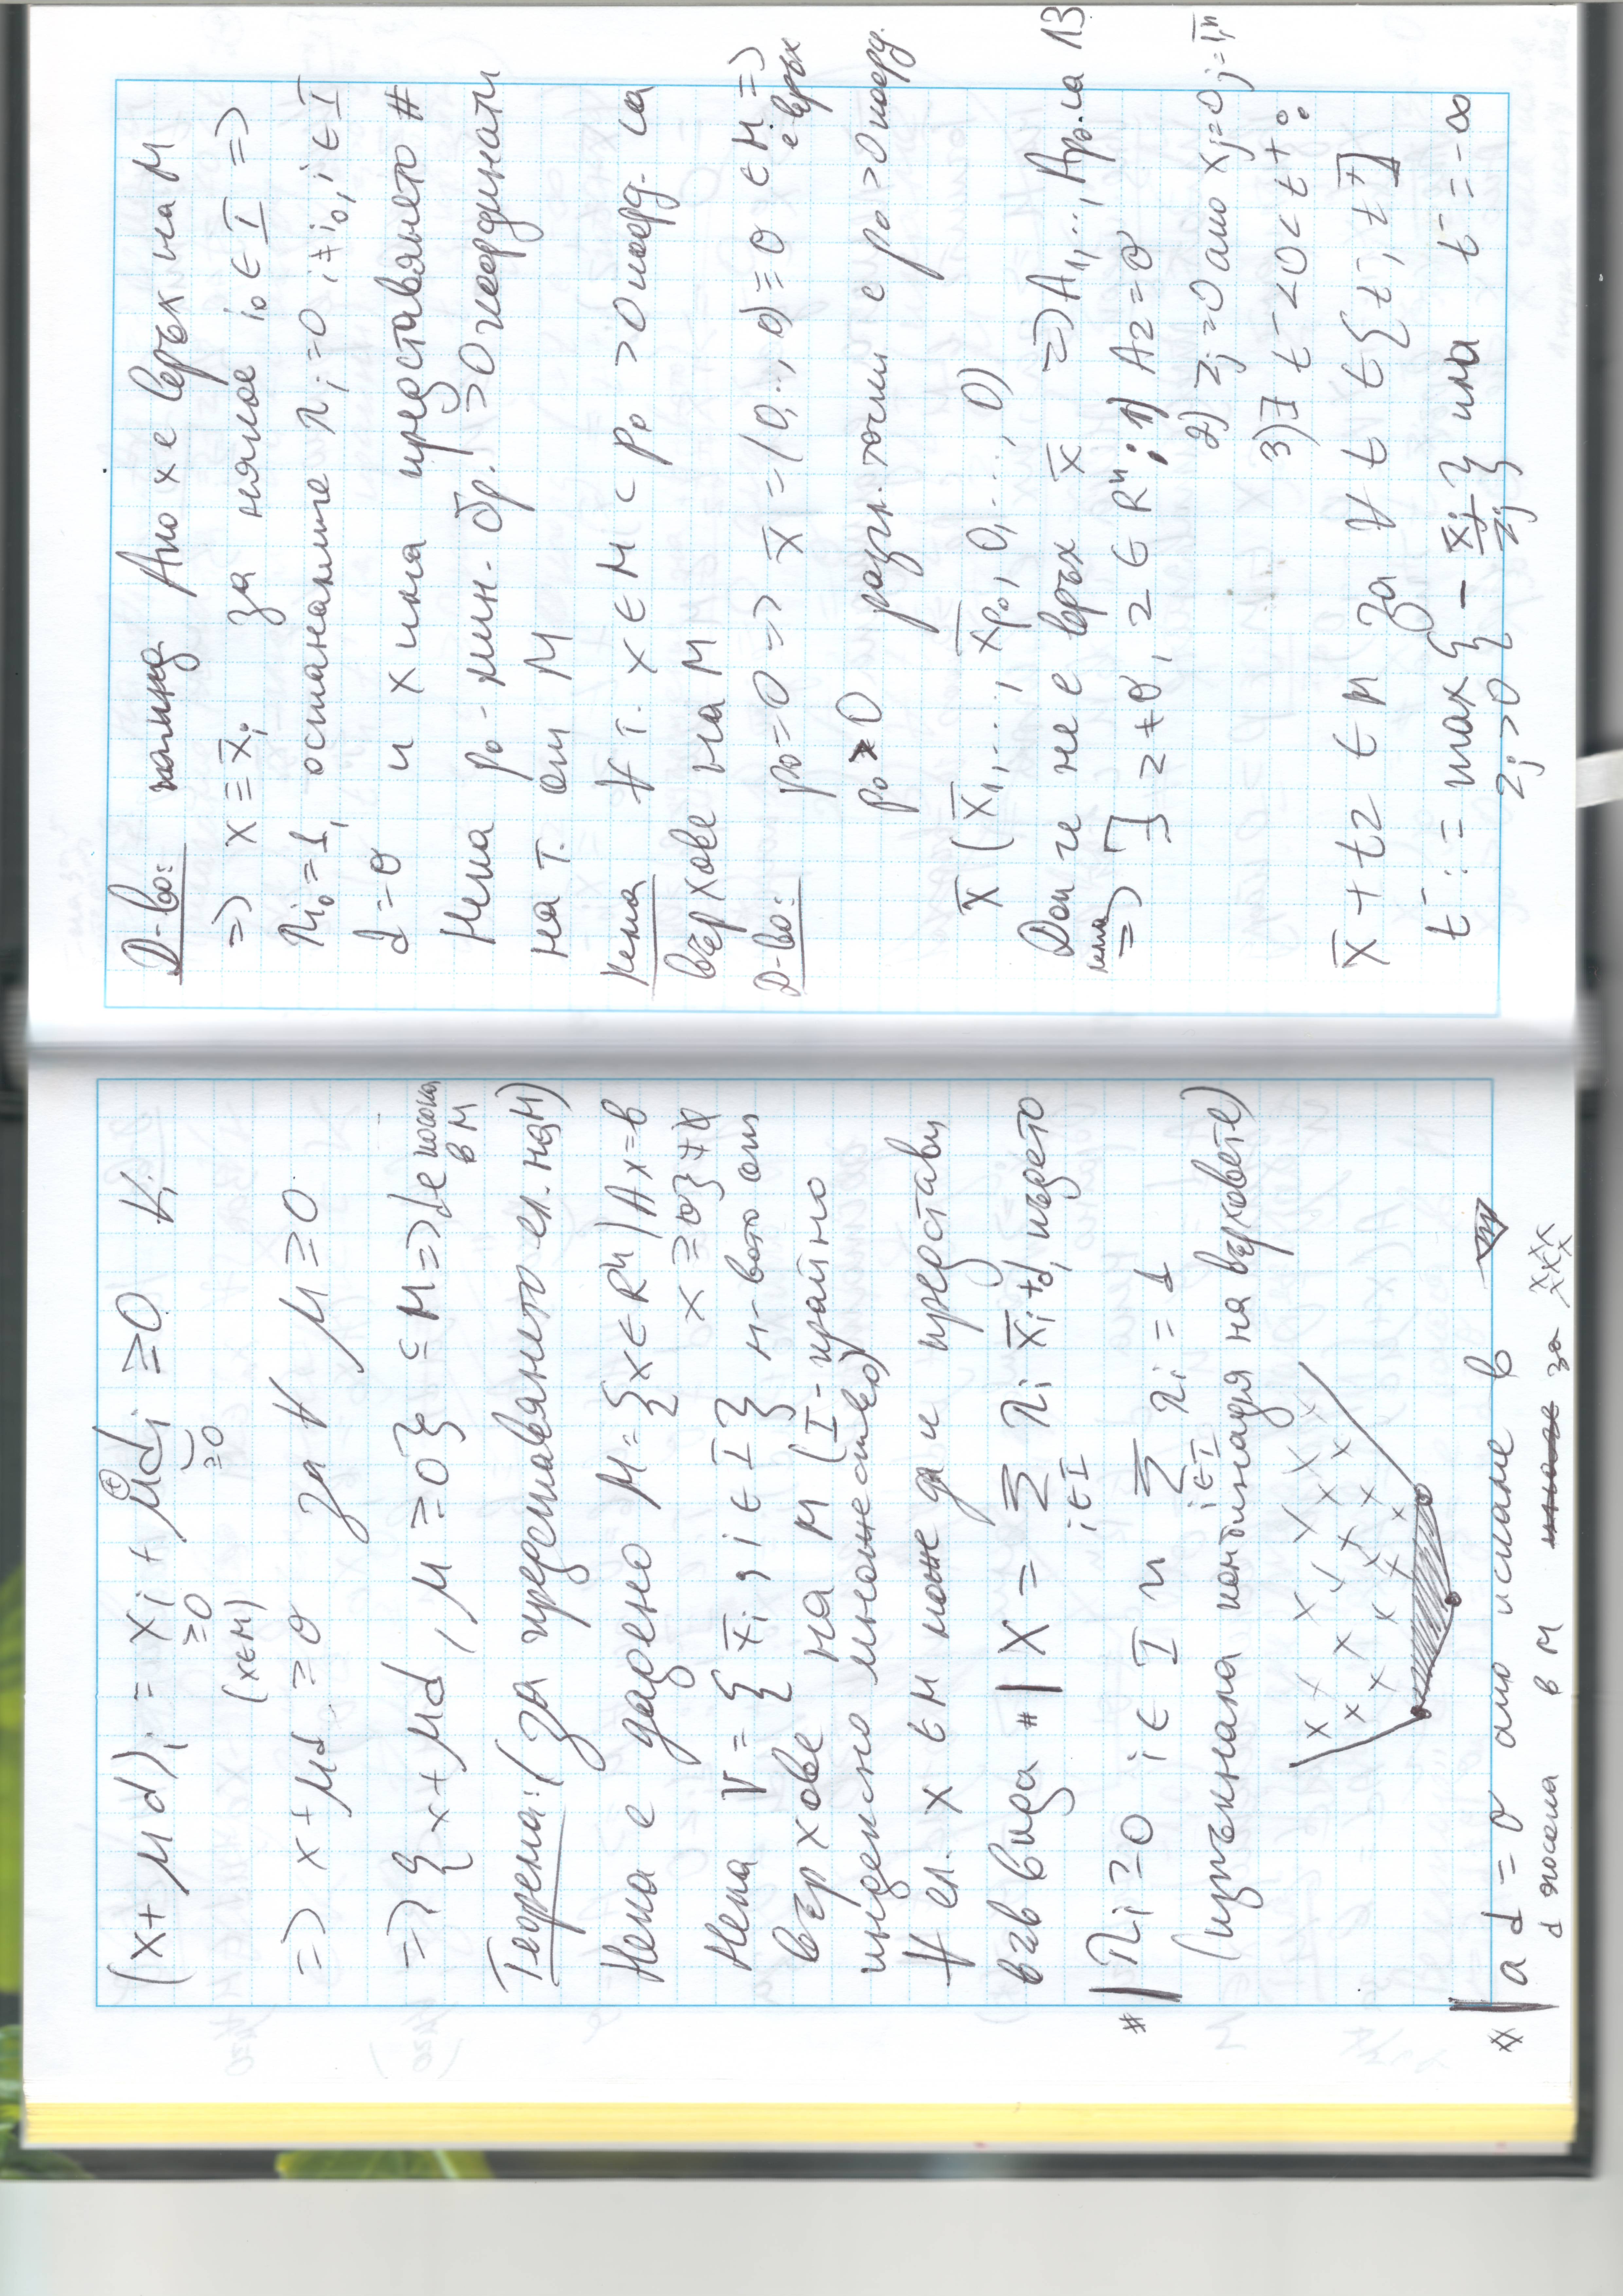 (x + μd)i = xi + μdi ≥ 0 ∀i
≥0 ≥0
(x∈M)
=> x + μd ≥ θ за ∀ μ ≥ 0
=> { x + μd, μ ≥ 0 } ⊆ M => d е посока в M
Теорема: (за представянето ел. на M)
Нека е дадено M = {x ∈ Rⁿ | Ax = b
x ≥ θ} ≠ ∅
Нека V = { x̄i, i ∈ I } м-вото от
върхове на M (I - крайно
индексно множество)
∀ ел. x ∈ M може да и представи
във вида # | x = Σ λi x̄i + d, където
i∈I
# | λi ≥ 0 i ∈ I и Σ λi = 1
i∈I
(изпъкнала комбинация на върховете)
# | а d = θ или
d посока в M за
Д-во: Ако x е връх на M
=> x ≡ x̄i за някое i₀ ∈ I =>
λi₀ = 1, останалите λi = 0 i ≠ i₀, i ∈ I
d = θ и x има представянето #
Нека p₀ - мин. бр. > 0 координати
на т. от M
Лема ∀ т. x ∈ M с p₀ > 0 коорд. са
върхове на M
Д-во: p₀ = 0 => x̄ = (0,.., 0) = θ ∈ M =>
е връх
p₀ > 0 разгл. точки с p₀ > 0 коорд.
x̄ (x̄1, ..., x̄p₀, 0, ..., 0)
Доп че не е връх x̄ => A1, .., Ap₀ са ЛЗ
лема
=> ∃ z ≠ θ, z ∈ Rⁿ: 1) Az = θ
2) zj = 0 ако xj = 0 j = 1,n
3) ∃ t⁻ < 0 < t⁺:
x̄ + tz ∈ M за ∀ t ∈ [t⁻, t⁺]
t⁻ := max { - x̄j / zj } или t⁻ = -∞
zj > 0